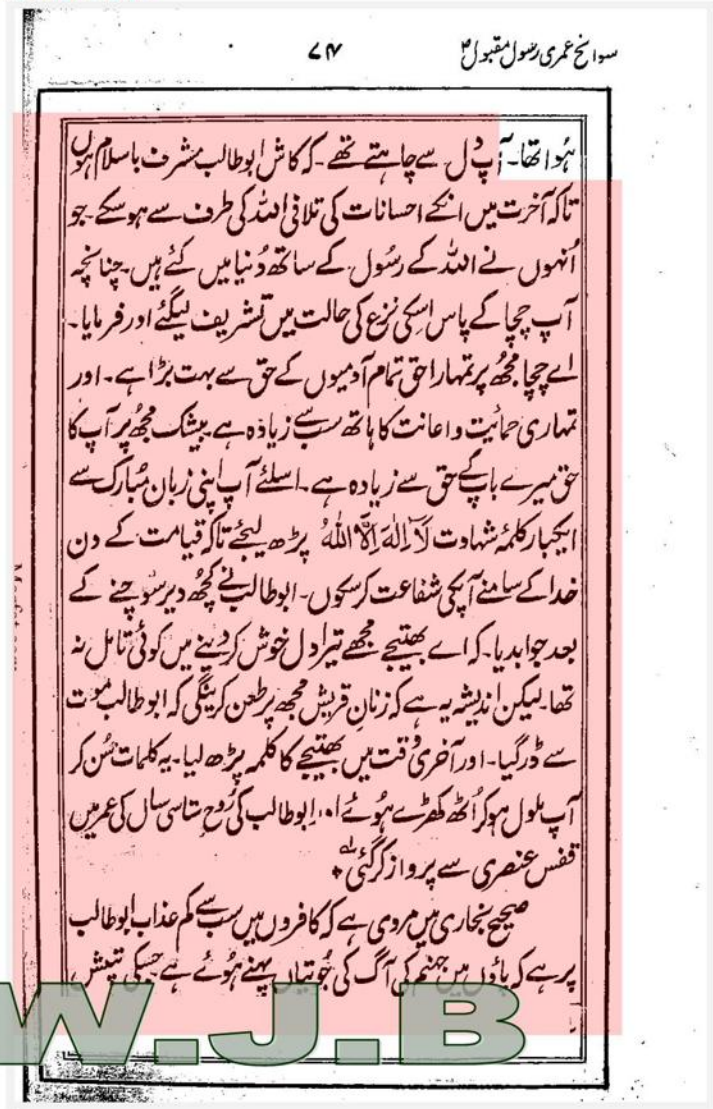 سوانح عمری رسول مقبول ؐ
۷۴
ہُوا تھا۔ آپ دل سے چاہتے تھے۔ کہ کاش ابوطالب مشرف باسلام ہوں
تاکہ آخرت میں انکے احسانات کی تلافی اللہ کی طرف سے ہو سکے۔ جو
اُنہوں نے اللہ کے رسُول کے ساتھ دُنیا میں کئے ہیں۔ چنانچہ
آپ چچا کے پاس اسکی نزع کی حالت میں تشریف لیگئے اور فرمایا۔
اے چچا مجھ پر تمہارا حق تمام آدمیوں کے حق سے بہت بڑا ہے۔ اور
تمہاری حمائیت و اعانت کا ہاتھ سب سے زیادہ ہے بیشک مجھ پر آپ کا
حق میرے باپ کے حق سے زیادہ ہے۔ اسلئے آپ اپنی زبان مُبارک سے
ایکبار کلمۂ شہادت لَآ اِلٰہَ اِلَّا اللہُ پڑھ لیجئے تاکہ قیامت کے دن
خدا کے سامنے آپکی شفاعت کر سکوں۔ ابوطالب نے کچھُ دیر سوچنے کے
بعد جوابدیا۔ کہ اے بھتیجے مجھے تیرا دل خوش کر دینے میں کوئی تامل نہ
تھا۔ لیکن اندیشہ یہ ہے کہ زنانِ قریش مجھ پر طعن کرینگی کہ ابوطالب موت
سے ڈر گیا۔ اور آخری وقت میں بھتیجے کا کلمہ پڑھ لیا۔ یہ کلمات سُن کر
آپ ملول ہو کر اُٹھ کھڑے ہُوئے اور ابوطالب کی رُوح ستاسی سال کی عمر میں
قفس عنصری سے پرواز کر گئی
صحیح بخاری میں مروی ہے کہ کافروں میں سب سے کم عذاب ابوطالب
پر ہے کہ پاؤں میں جہنم کی آگ کی جُوتیاں پہنے ہُوئے ہے جسکی تپش
W.J.B